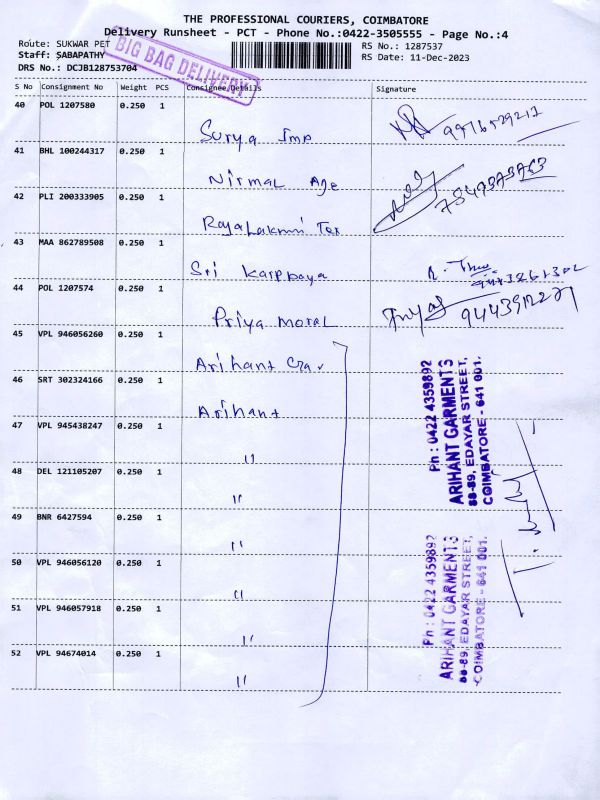 THE PROFESSIONAL COURIERS, COIMBATORE
Delivery Runsheet - PCT - Phone No.:0422-3505555 - Page No.:4
Route: SUKWAR PET
RS No.: 1287537
Staff: SABAPATHY
RS Date: 11-Dec-2023
DRS No.: DCJB128753704
BIG BAG DELIVERY
S No Consignment No Weight PCS Consignee Details Signature
40 POL 1207580 0.250 1
Surya Imp
41 BHL 100244317 0.250 1
Nirmal Age
42 PLI 200333905 0.250 1
RajaLakmi Tex
43 MAA 862789508 0.250 1
Sri Karppaya
44 POL 1207574 0.250 1
Priya moral
45 VPL 946056260 0.250 1
Arihant
46 SRT 302324166 0.250 1
Arihant
47 VPL 945438247 0.250 1
"
48 DEL 121105207 0.250 1
"
49 BNR 6427594 0.250 1
"
50 VPL 946056120 0.250 1
"
51 VPL 946057918 0.250 1
"
52 VPL 94674014 0.250 1
"
Ph : 0422 4359892
ARIHANT GARMENTS
88-89, EDAYAR STREET,
COIMBATORE - 641 001.
Ph : 0422 4359892
ARIHANT GARMENTS
88-89, EDAYAR STREET,
COIMBATORE - 641 001.